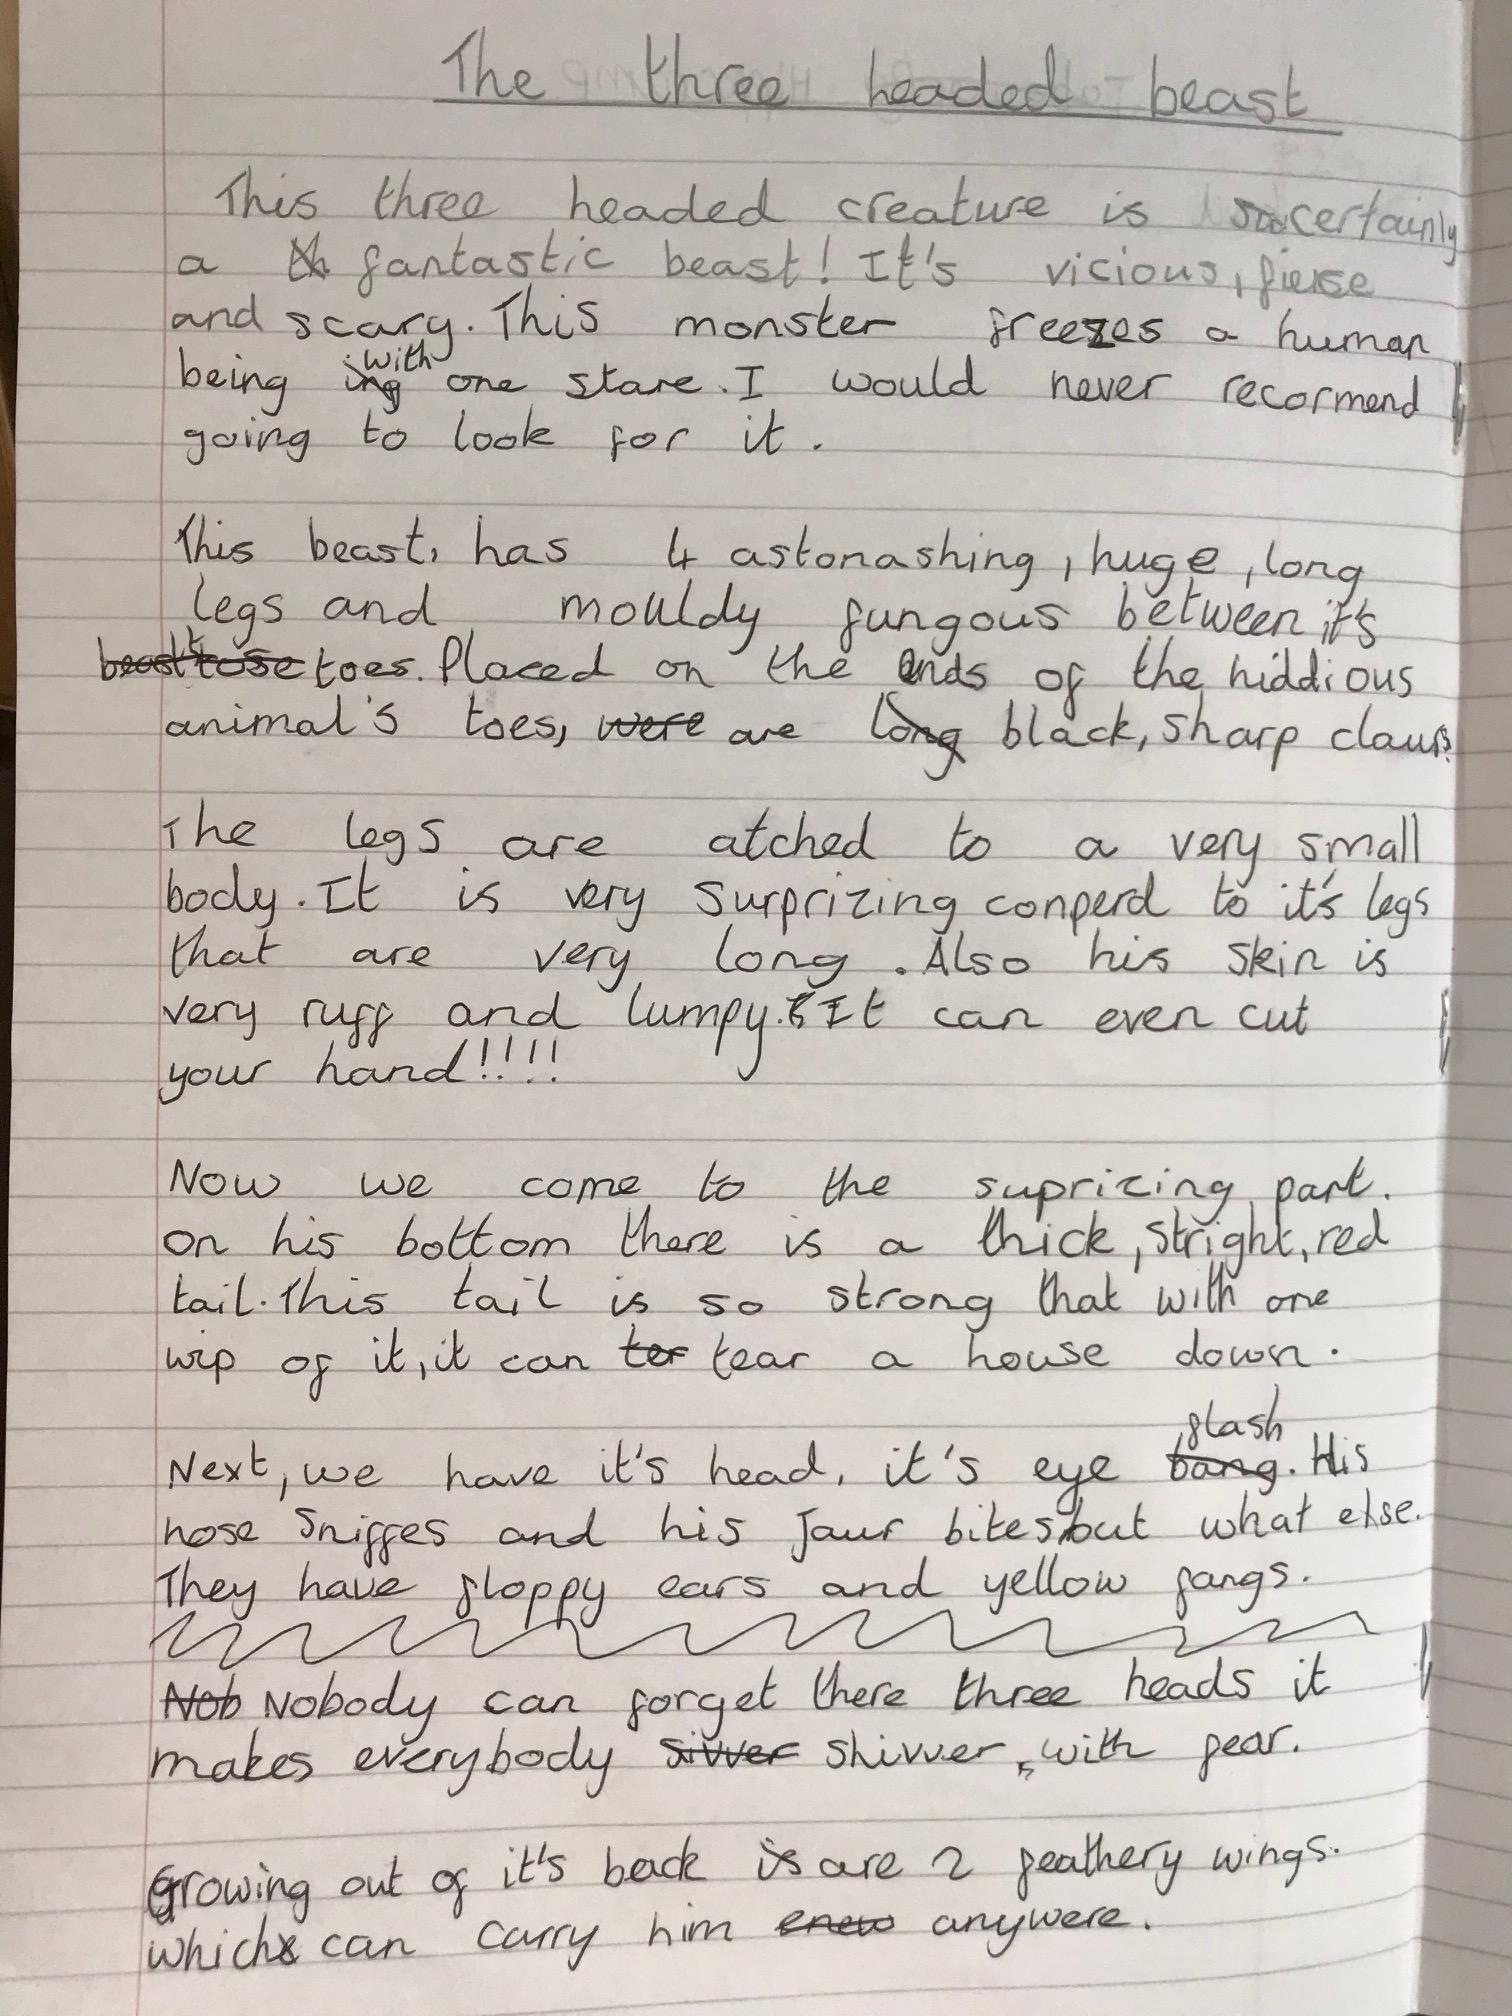 The three headed beast
This three headed creature is certainly
a fantastic beast! It's vicious, fierse
and scary. This monster freezes a human
being with one stare. I would never recormend
going to look for it.
This beast, has 4 astonashing, huge, long
legs and mouldy fungous between it's
toes. Placed on the ends of the hiddious
animal's toes, were are long black, sharp claws.
The legs are atched to a very small
body. It is very surprizing conperd to it's legs
that are very long. Also his skin is
very ruff and lumpy. It can even cut
your hand!!!!
Now we come to the suprizing part.
on his bottom there is a thick, stright, red
tail. This tail is so strong that with one
wip of it, it can ter tear a house down.
Next, we have it's head, it's eye bang flash. His
nose sniffes and his jaur bites but what else.
They have floppy ears and yellow fangs.
Nob Nobody can forget there three heads it
makes everybody sivver shivver, with fear.
Growing out of it's back is are 2 feathery wings.
which can carry him anywere.